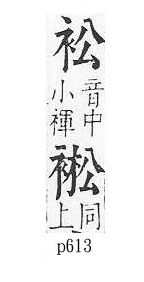 衳
音中
小褌
䘴
同
上
p613